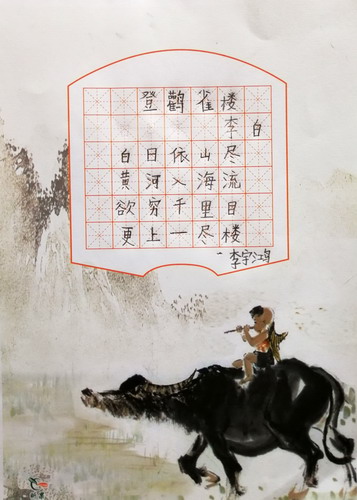 登鹳雀楼
李白
白日依山尽
黄河入海流
欲穷千里目
更上一尽楼
-李宇鸿